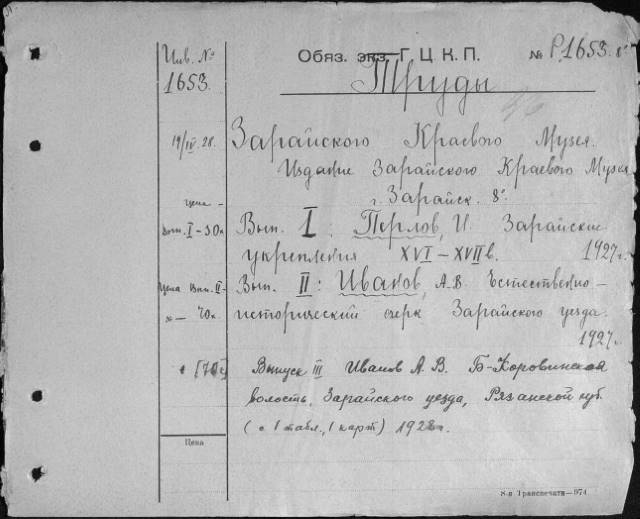 Инв. № Обяз. экз. Г. Ц. К. П. № Р,1653. 8°
1653. Труды
19/IV 28. Зарайского Краевого Музея.
Издание Зарайского Краевого Музея
г. Зарайск. 8°
цена –
Вып. I – 50к Вып. I: Перлов, И. Зарайские
укрепления XVI – XVII в. 1927 г.
Цена Вып. II – Вып. II: Иванов, А.В. Естественно –
70к. исторический очерк Зарайского уезда.
1927 г.
[70к] Выпуск III Иванов А. В. Б-Коровинская
волость, Зарайского уезда, Рязанской губ.
(с 1 табл., 1 карт) 1928 г.
Цена
8-я Транспечати—974